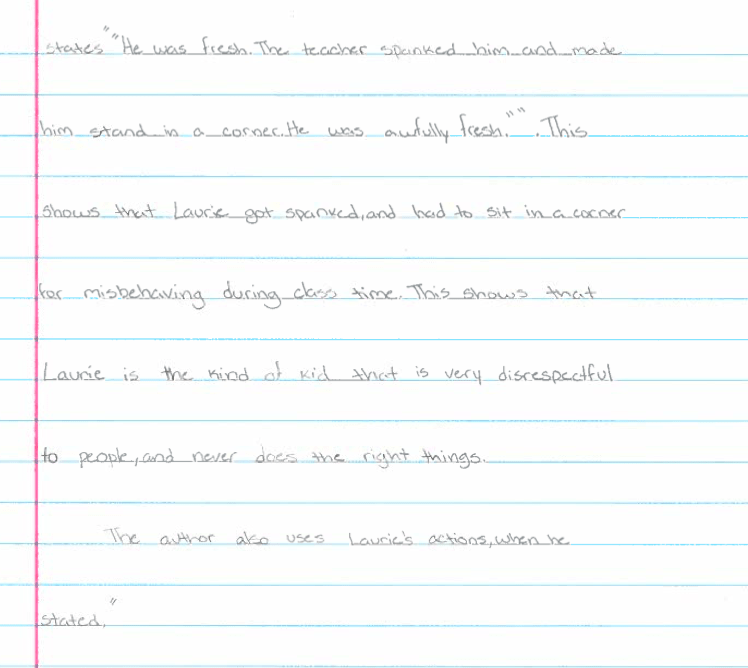 states ""He was fresh. The teacher spanked him and made
him stand in a corner. He was awfully fresh."". This
shows that Laurie got spanked, and had to sit in a corner
for misbehaving during class time. This shows that
Laurie is the kind of kid that is very disrespectful
to people, and never does the right things.
The author also uses Laurie's actions, when he
stated, "